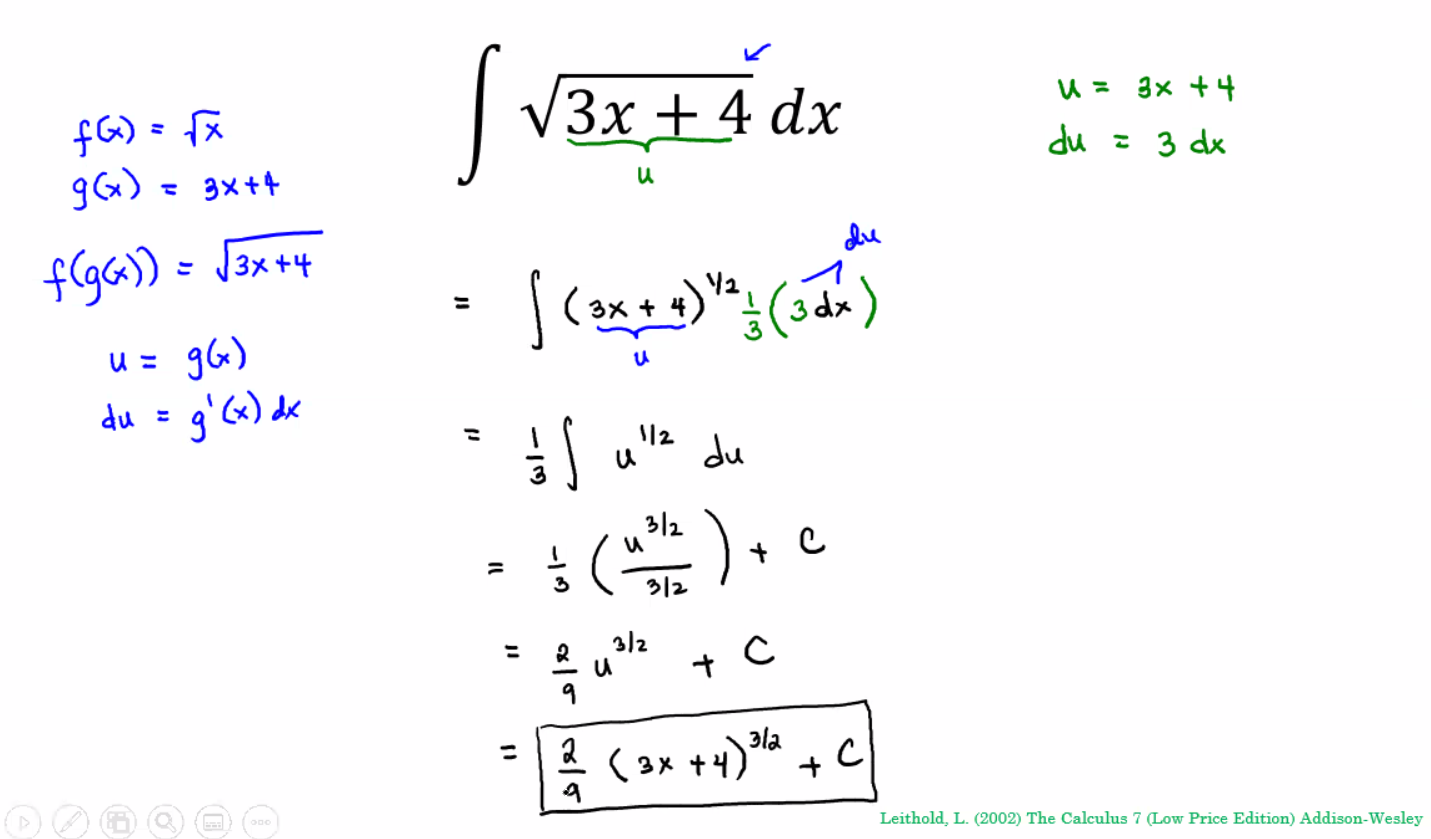 ∫ √(3x + 4) dx
u
f(x) = √x
g(x) = 3x+4
f(g(x)) = √(3x+4)
u = g(x)
du = g'(x) dx
u = 3x + 4
du = 3 dx
du
= ∫ (3x + 4)^1/2 1/3 (3 dx)
u
= 1/3 ∫ u^1/2 du
= 1/3 (u^3/2 / 3/2) + C
= 2/9 u^3/2 + C
= 2/9 (3x + 4)^3/2 + C
Leithold, L. (2002) The Calculus 7 (Low Price Edition) Addison-Wesley